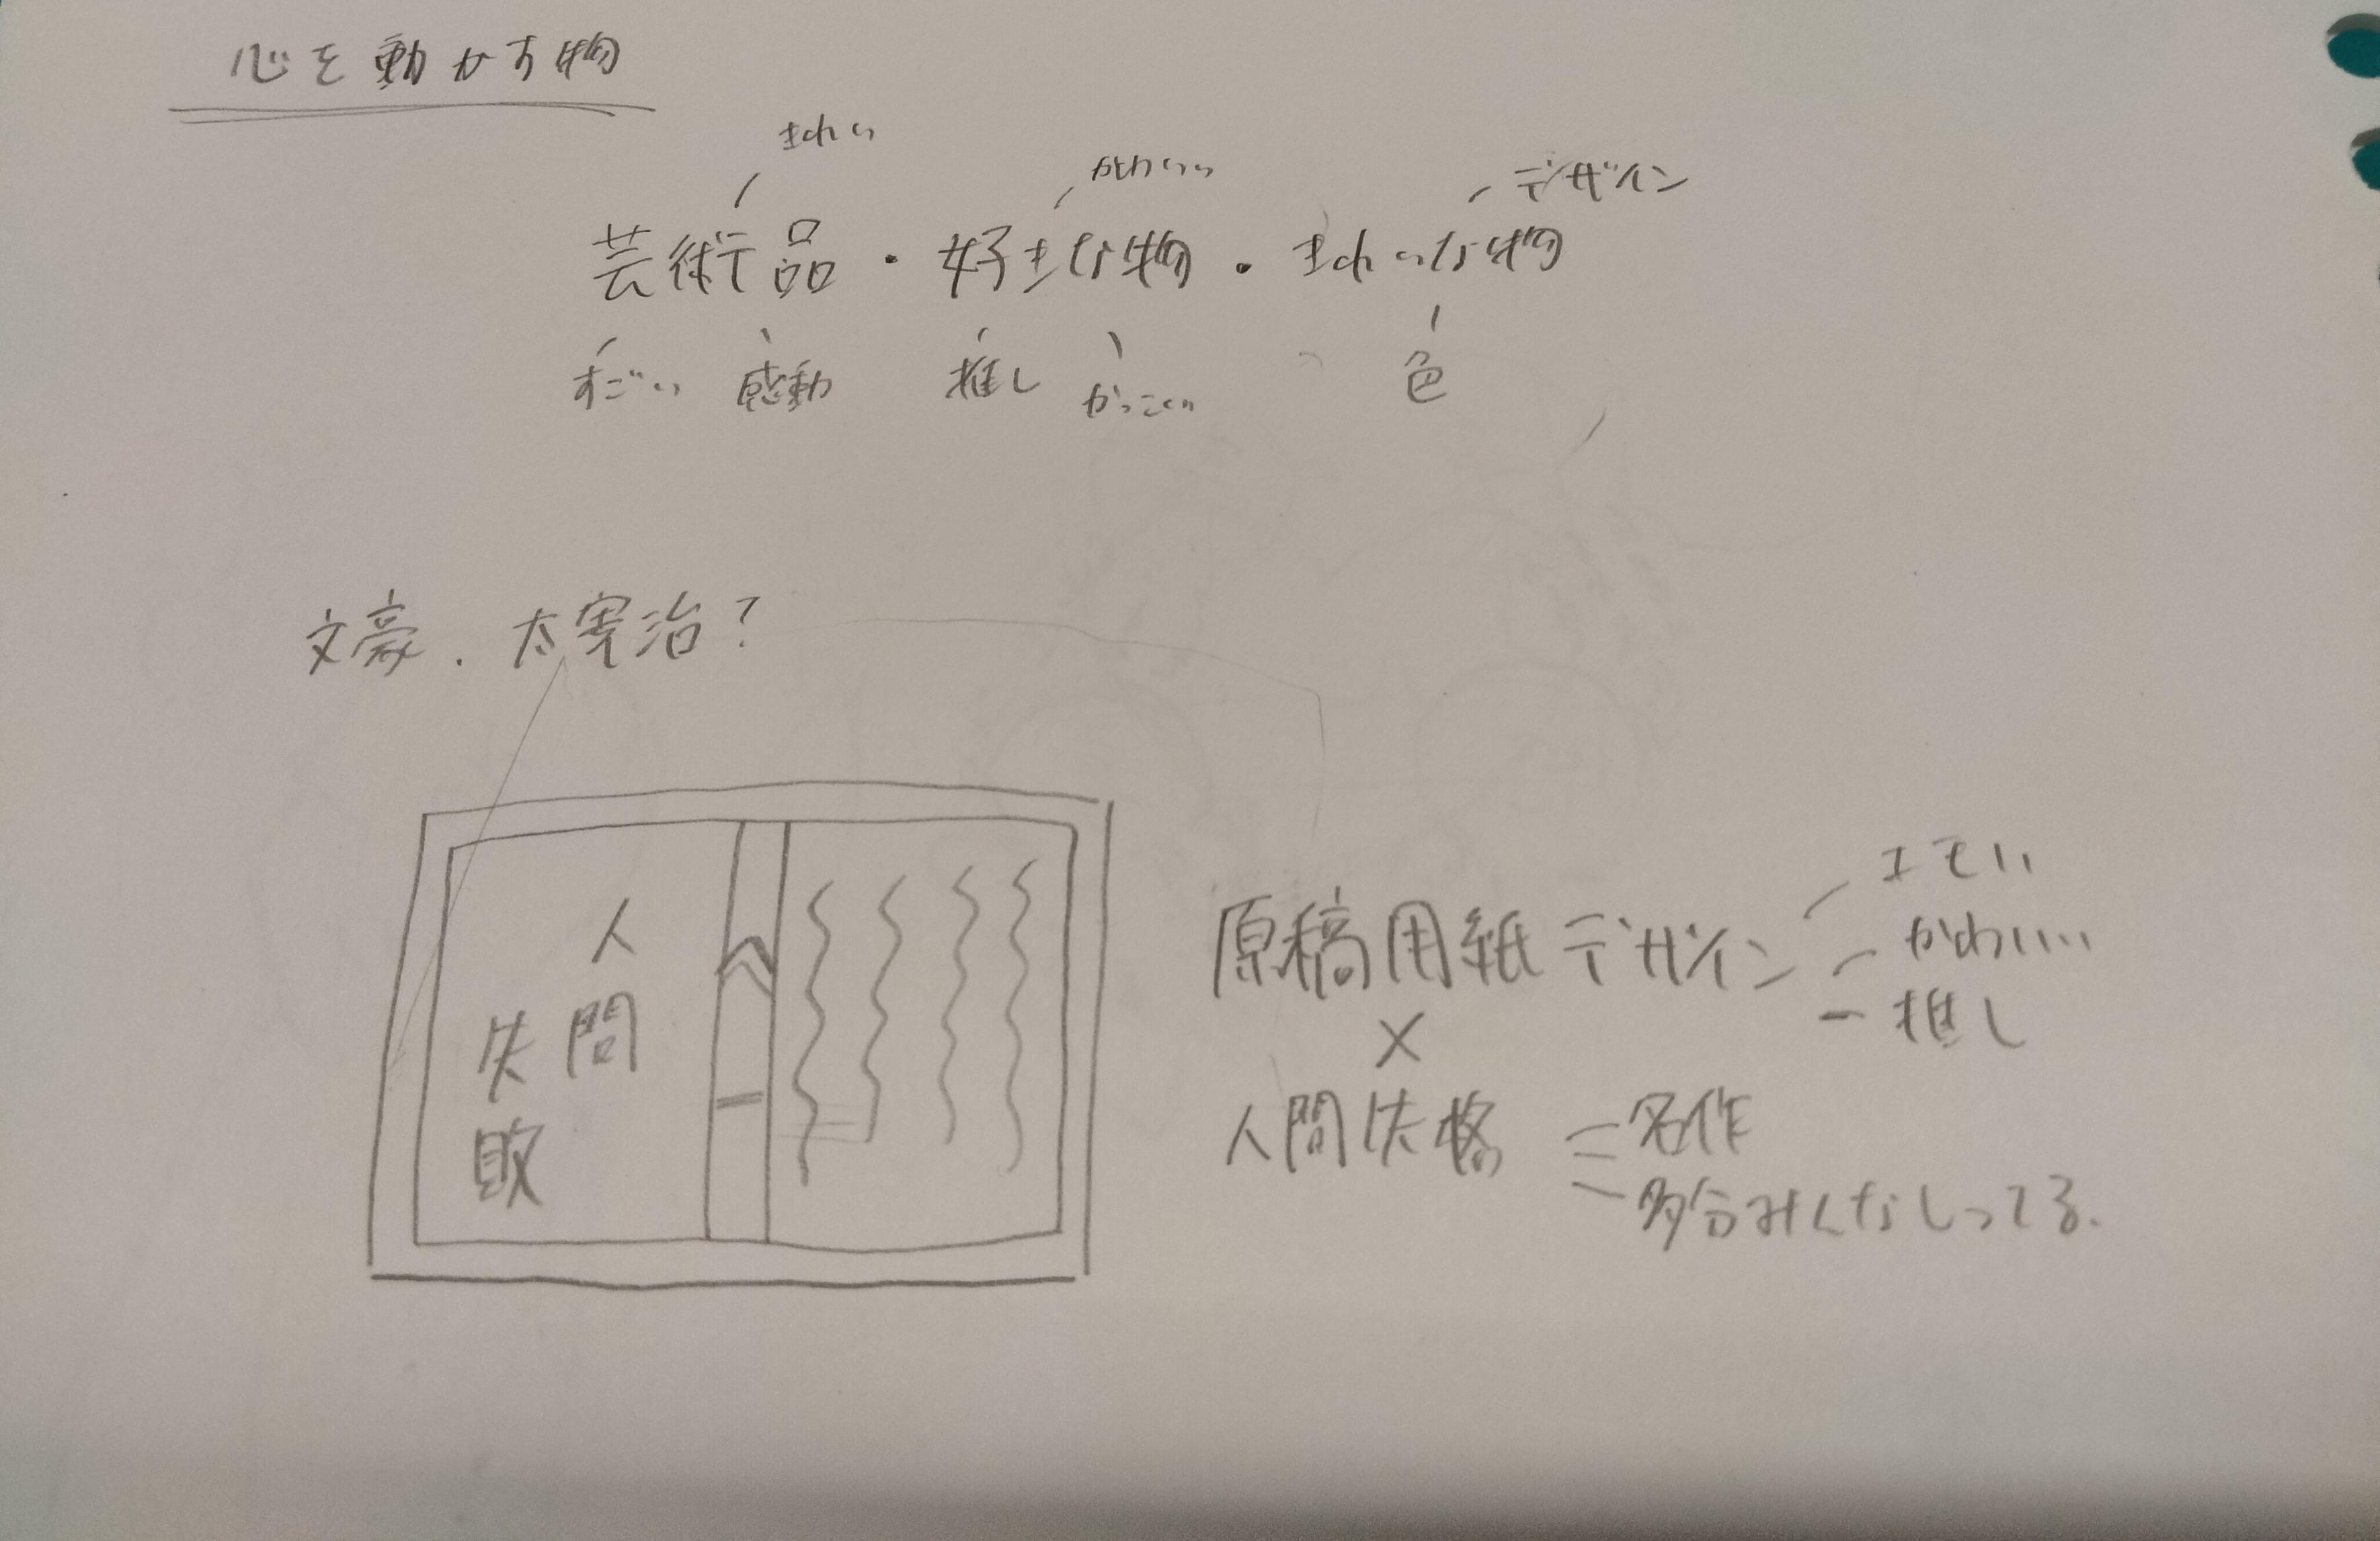 心を動かす物
きれい
かわいい
デザイン
芸術品・好きな物・きれいな物
すごい 感動 推し かっこいい 色
文豪.太宰治?
人間
失敗
原稿用紙デザイン
エモい
かわいい
推し
×
人間失格
名作
多分みんなしってる.